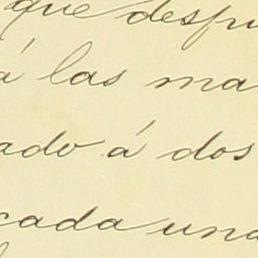 que despu
á las ma
ado á dos
cada una